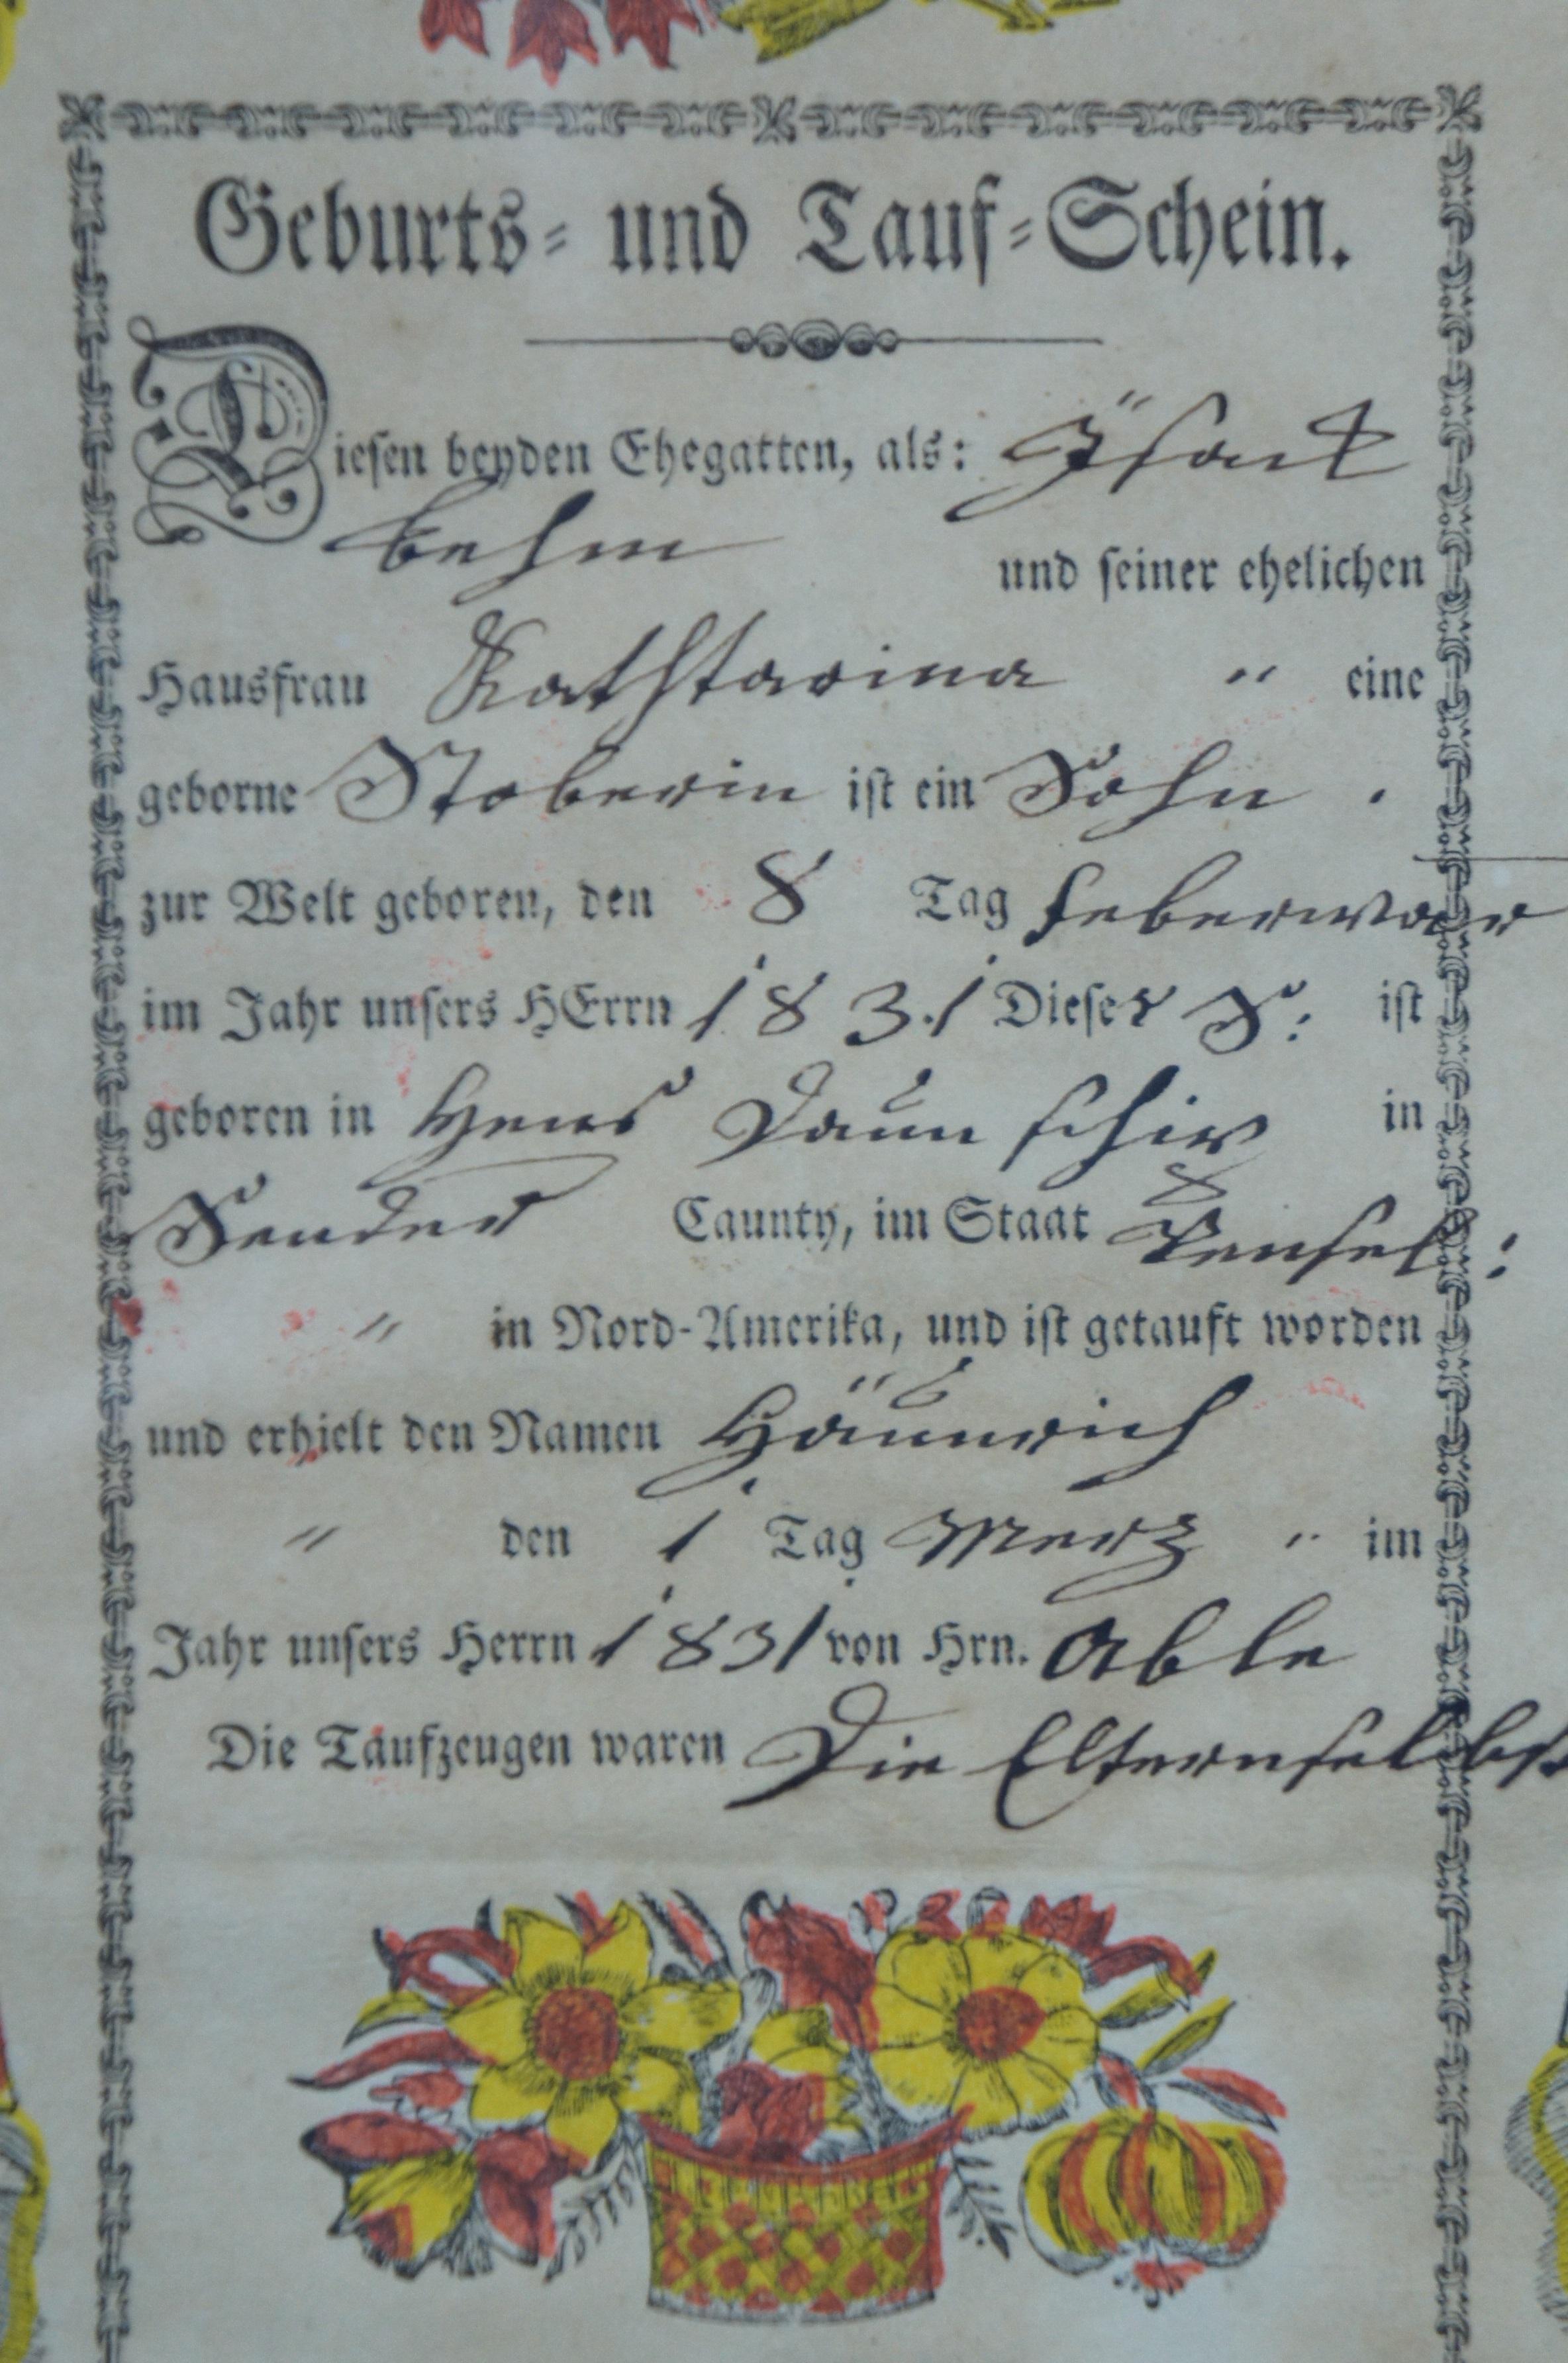 Geburts- und Tauf-Schein.
Diesen beyden Ehegatten, als: Isaak
behm
und seiner ehelichen
Hausfrau Kathtarina " eine
geborne Stoberin ist ein Sohn .
zur Welt geboren, den 8 Tag Feberwar
im Jahr unsers HErrn 1831 Dieser S: ist
geboren in Hens Daun schip in
Sender Caunty, im Staat Pensel:
" in Nord-Amerika, und ist getauft worden
und erhielt den Namen Häünrich
" den 1 Tag Merz " im
Jahr unsers Herrn 1831 von Hrn. Able
Die Taufzeugen waren Die Eltern selbst